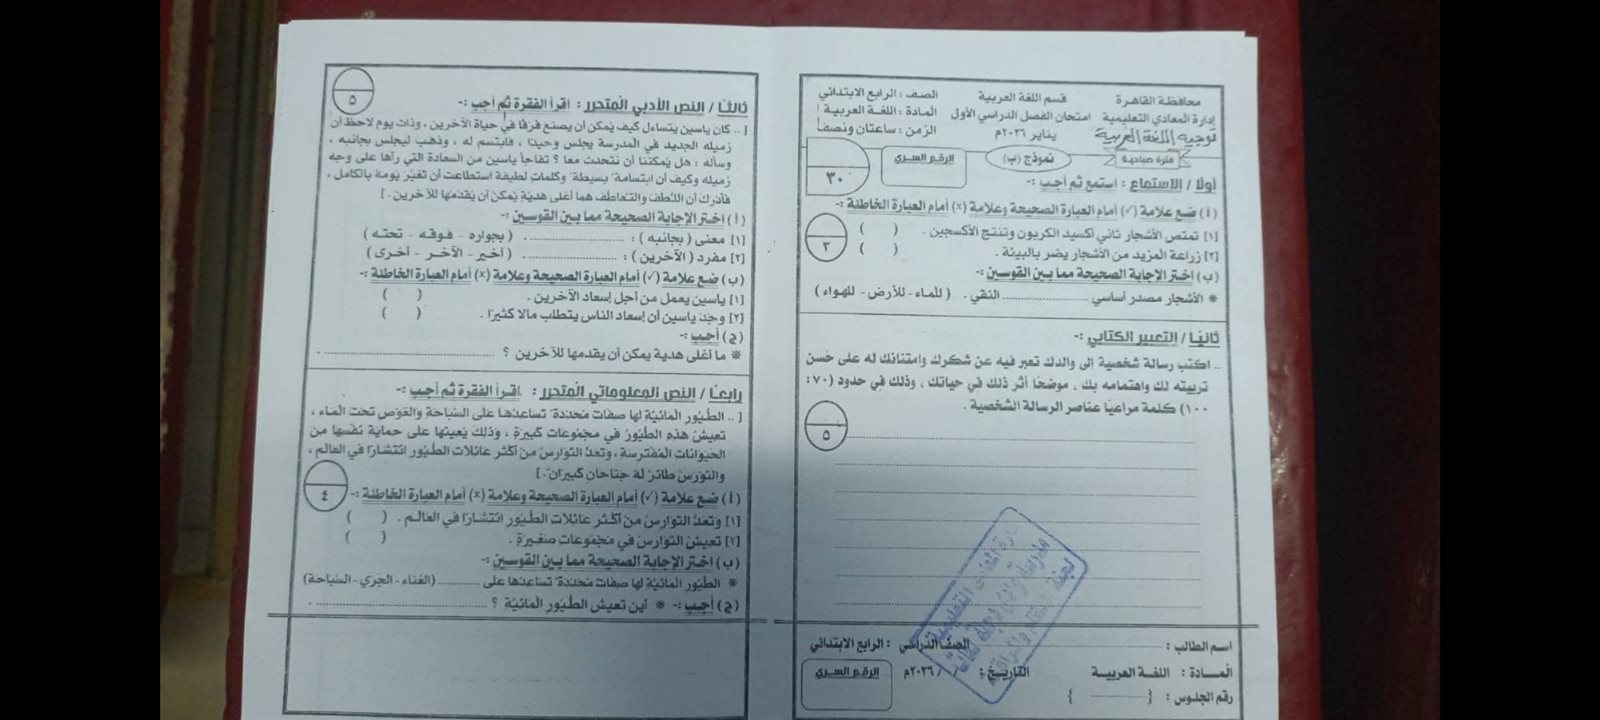 محافظة القاهرة
إدارة المعادي التعليمية
توجيه اللغة العربية
قسم اللغة العربية
امتحان الفصل الدراسي الأول
يناير ٢٠٢٦م
الصف : الرابع الابتدائي
المادة : اللغة العربية
الزمن : ساعتان ونصف
فترة صباحية
نموذج (ب)
الرقم السري
٣٠
أولًا / الاستماع : استمع ثم أجب :-
(أ) ضع علامة (✓) أمام العبارة الصحيحة وعلامة (×) أمام العبارة الخاطئة :-
٣
[١] تمتص الأشجار ثاني أكسيد الكربون وتنتج الأكسجين . ( )
[٢] زراعة المزيد من الأشجار يضر بالبيئة . ( )
(ب) اختر الإجابة الصحيحة مما بين القوسين :-
* الأشجار مصدر أساسي .................... النقي . ( للماء - للأرض - للهواء )
ثانيًا / التعبير الكتابي :-
.. اكتب رسالة شخصية إلى والدك تعبر فيه عن شكرك وامتنانك له على حسن
تربيته لك واهتمامه بك ، موضحًا أثر ذلك في حياتك ، وذلك في حدود (٧٠ :
١٠٠) كلمة مراعيًا عناصر الرسالة الشخصية .
٥
اسم الطالب :
الصف الدراسي : الرابع الابتدائي
المـادة : اللغة العربية
التاريخ : / / ٢٠٢٦م
رقم الجلوس : { }
الرقم السري
٥
ثالثًا / النص الأدبي المتحرر : اقرأ الفقرة ثم أجب :-
[ .. كان ياسين يتساءل كيف يمكن أن يصنع فرقًا في حياة الآخرين ، وذات يوم لاحظ أن
زميله الجديد في المدرسة يجلس وحيدًا ، فابتسم له ، وذهب ليجلس بجانبه ،
وسأله : هل يمكننا أن نتحدث معا ؟ تفاجأ ياسين من السعادة التي رآها على وجه
زميله وكيف أن ابتسامة بسيطة وكلمات لطيفة استطاعت أن تغير يومه بالكامل ،
فأدرك أن اللطف والتعاطف هما أغلى هدية يمكن أن يقدمها للآخرين . ]
(أ) اختر الإجابة الصحيحة مما بين القوسين :-
[١] معنى ( بجانبه ) : .................... ( بجواره - فوقه - تحته )
[٢] مفرد ( الآخرين ) : .................... ( أخير - الآخر - أخرى )
(ب) ضع علامة (✓) أمام العبارة الصحيحة وعلامة (×) أمام العبارة الخاطئة :-
[١] ياسين يعمل من أجل إسعاد الآخرين . ( )
[٢] وجد ياسين أن إسعاد الناس يتطلب مالا كثيرًا . ( )
(ج) أجب :-
* ما أغلى هدية يمكن أن يقدمها للآخرين ؟ .................... .
رابعًا / النص المعلوماتي المتحرر : اقرأ الفقرة ثم أجب :-
[ .. الطيور المائية لها صفات محددة تساعدها على السباحة والغوص تحت الماء ،
تعيش هذه الطيور في مجموعات كبيرة ، وذلك يعينها على حماية نفسها من
الحيوانات المفترسة ، وتعد النوارس من أكثر عائلات الطيور انتشارًا في العالم ،
والنورس طائر له جناحان كبيران . ]
٤
(أ) ضع علامة (✓) أمام العبارة الصحيحة وعلامة (×) أمام العبارة الخاطئة :-
[١] وتعد النوارس من أكثر عائلات الطيور انتشارًا في العالم . ( )
[٢] تعيش النوارس في مجموعات صغيرة . ( )
(ب) اختر الإجابة الصحيحة مما بين القوسين :-
* الطيور المائية لها صفات محددة تساعدها على .......... (الغناء - الجري - السباحة)
(ج) أجب :- * أين تعيش الطيور المائية ؟ .................... .